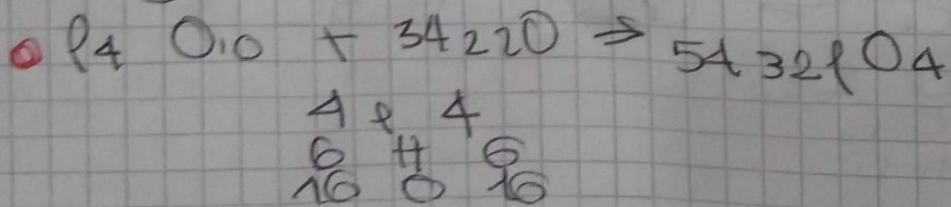 P4 O10 + 34220 ⇒ 5432PO4
4 P 4
6 H 6
16 O 16